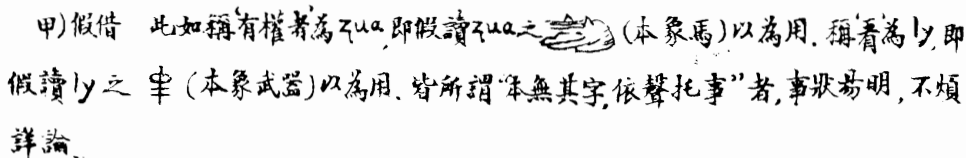 甲)假借 此如稱‘有權者’為zua,即假讀zua之 (本象馬)以為用.稱‘看’為ly,即
假讀ly之 (本象武器)以為用.皆所謂“本無其字,依聲托事”者,事狀易明,不煩
詳論.